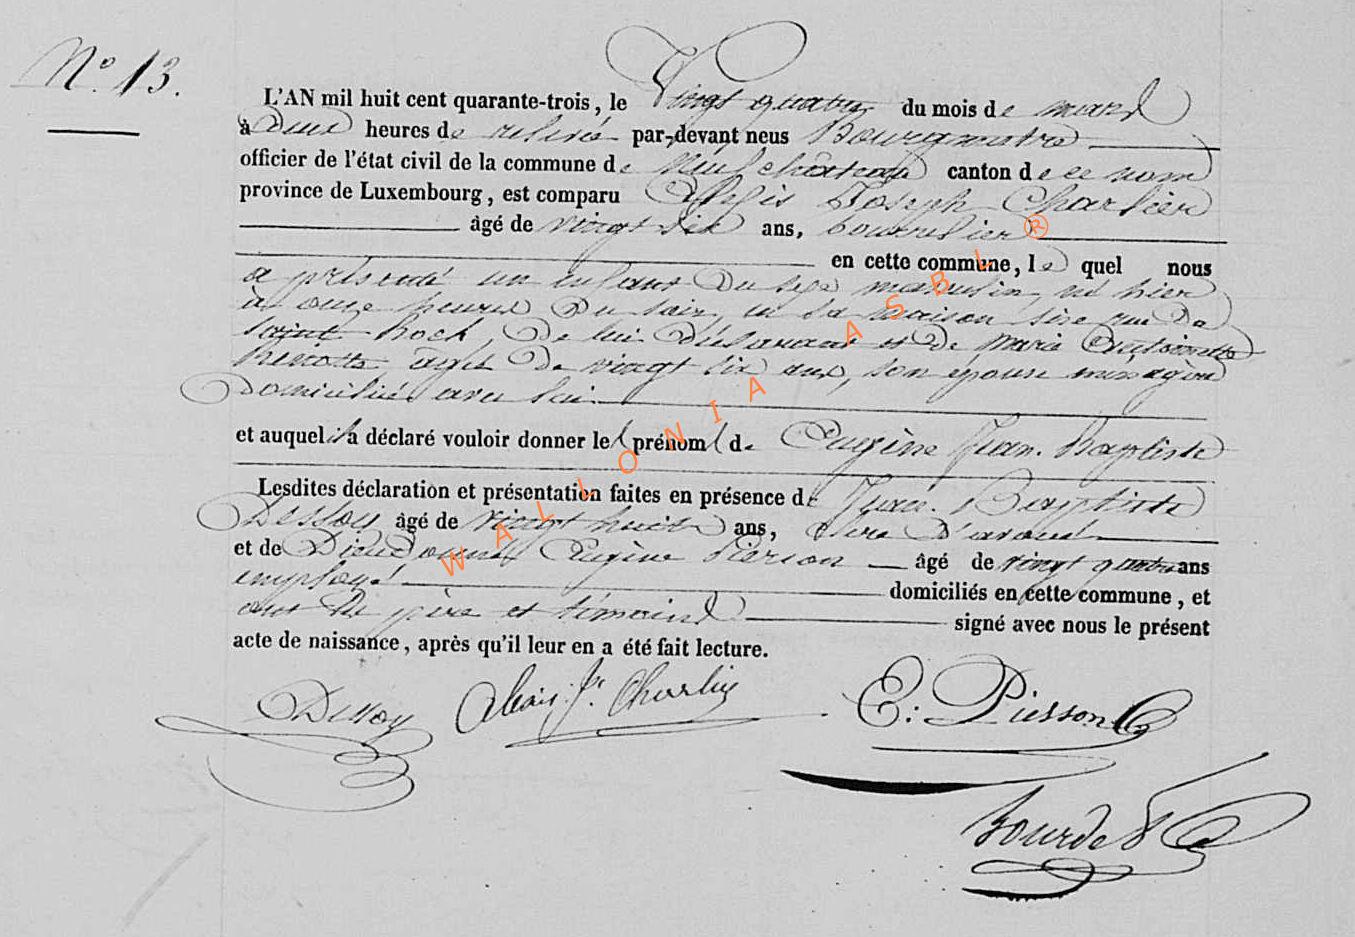 N.º 13.
L'AN mil huit cent quarante-trois, le Vingt quatre du mois de mars
à Deux heures de relevée par-devant nous Bourgmestre
officier de l'état civil de la commune de Neufchâteau canton de ce nom
province de Luxembourg, est comparu Alexis Joseph Charlier
âgé de vingt six ans, bourrelier
en cette commune, le quel nous
a présenté un enfant du sexe masculin, né hier
à onze heures du soir, en sa maison sise rue de
Saint Roch, de lui déclarant et de Marie Antoinette
âgée de vingt six ans, son épouse ménagère
Domiciliée avec lui.
et auquel il a déclaré vouloir donner les prénoms de Eugène Jean-Baptiste
Lesdites déclaration et présentation faites en présence de Jean-Baptiste
Dessoy âgé de vingt huit ans, clerc d'avoué
et de Dieudonné Eugène Pierson âgé de vingt quatre ans
employé domiciliés en cette commune, et
ont les père et témoins signé avec nous le présent
acte de naissance, après qu'il leur en a été fait lecture.
Dessoy Alexis Jh Charlier E: Pierson
WALLONIA ASBL ®